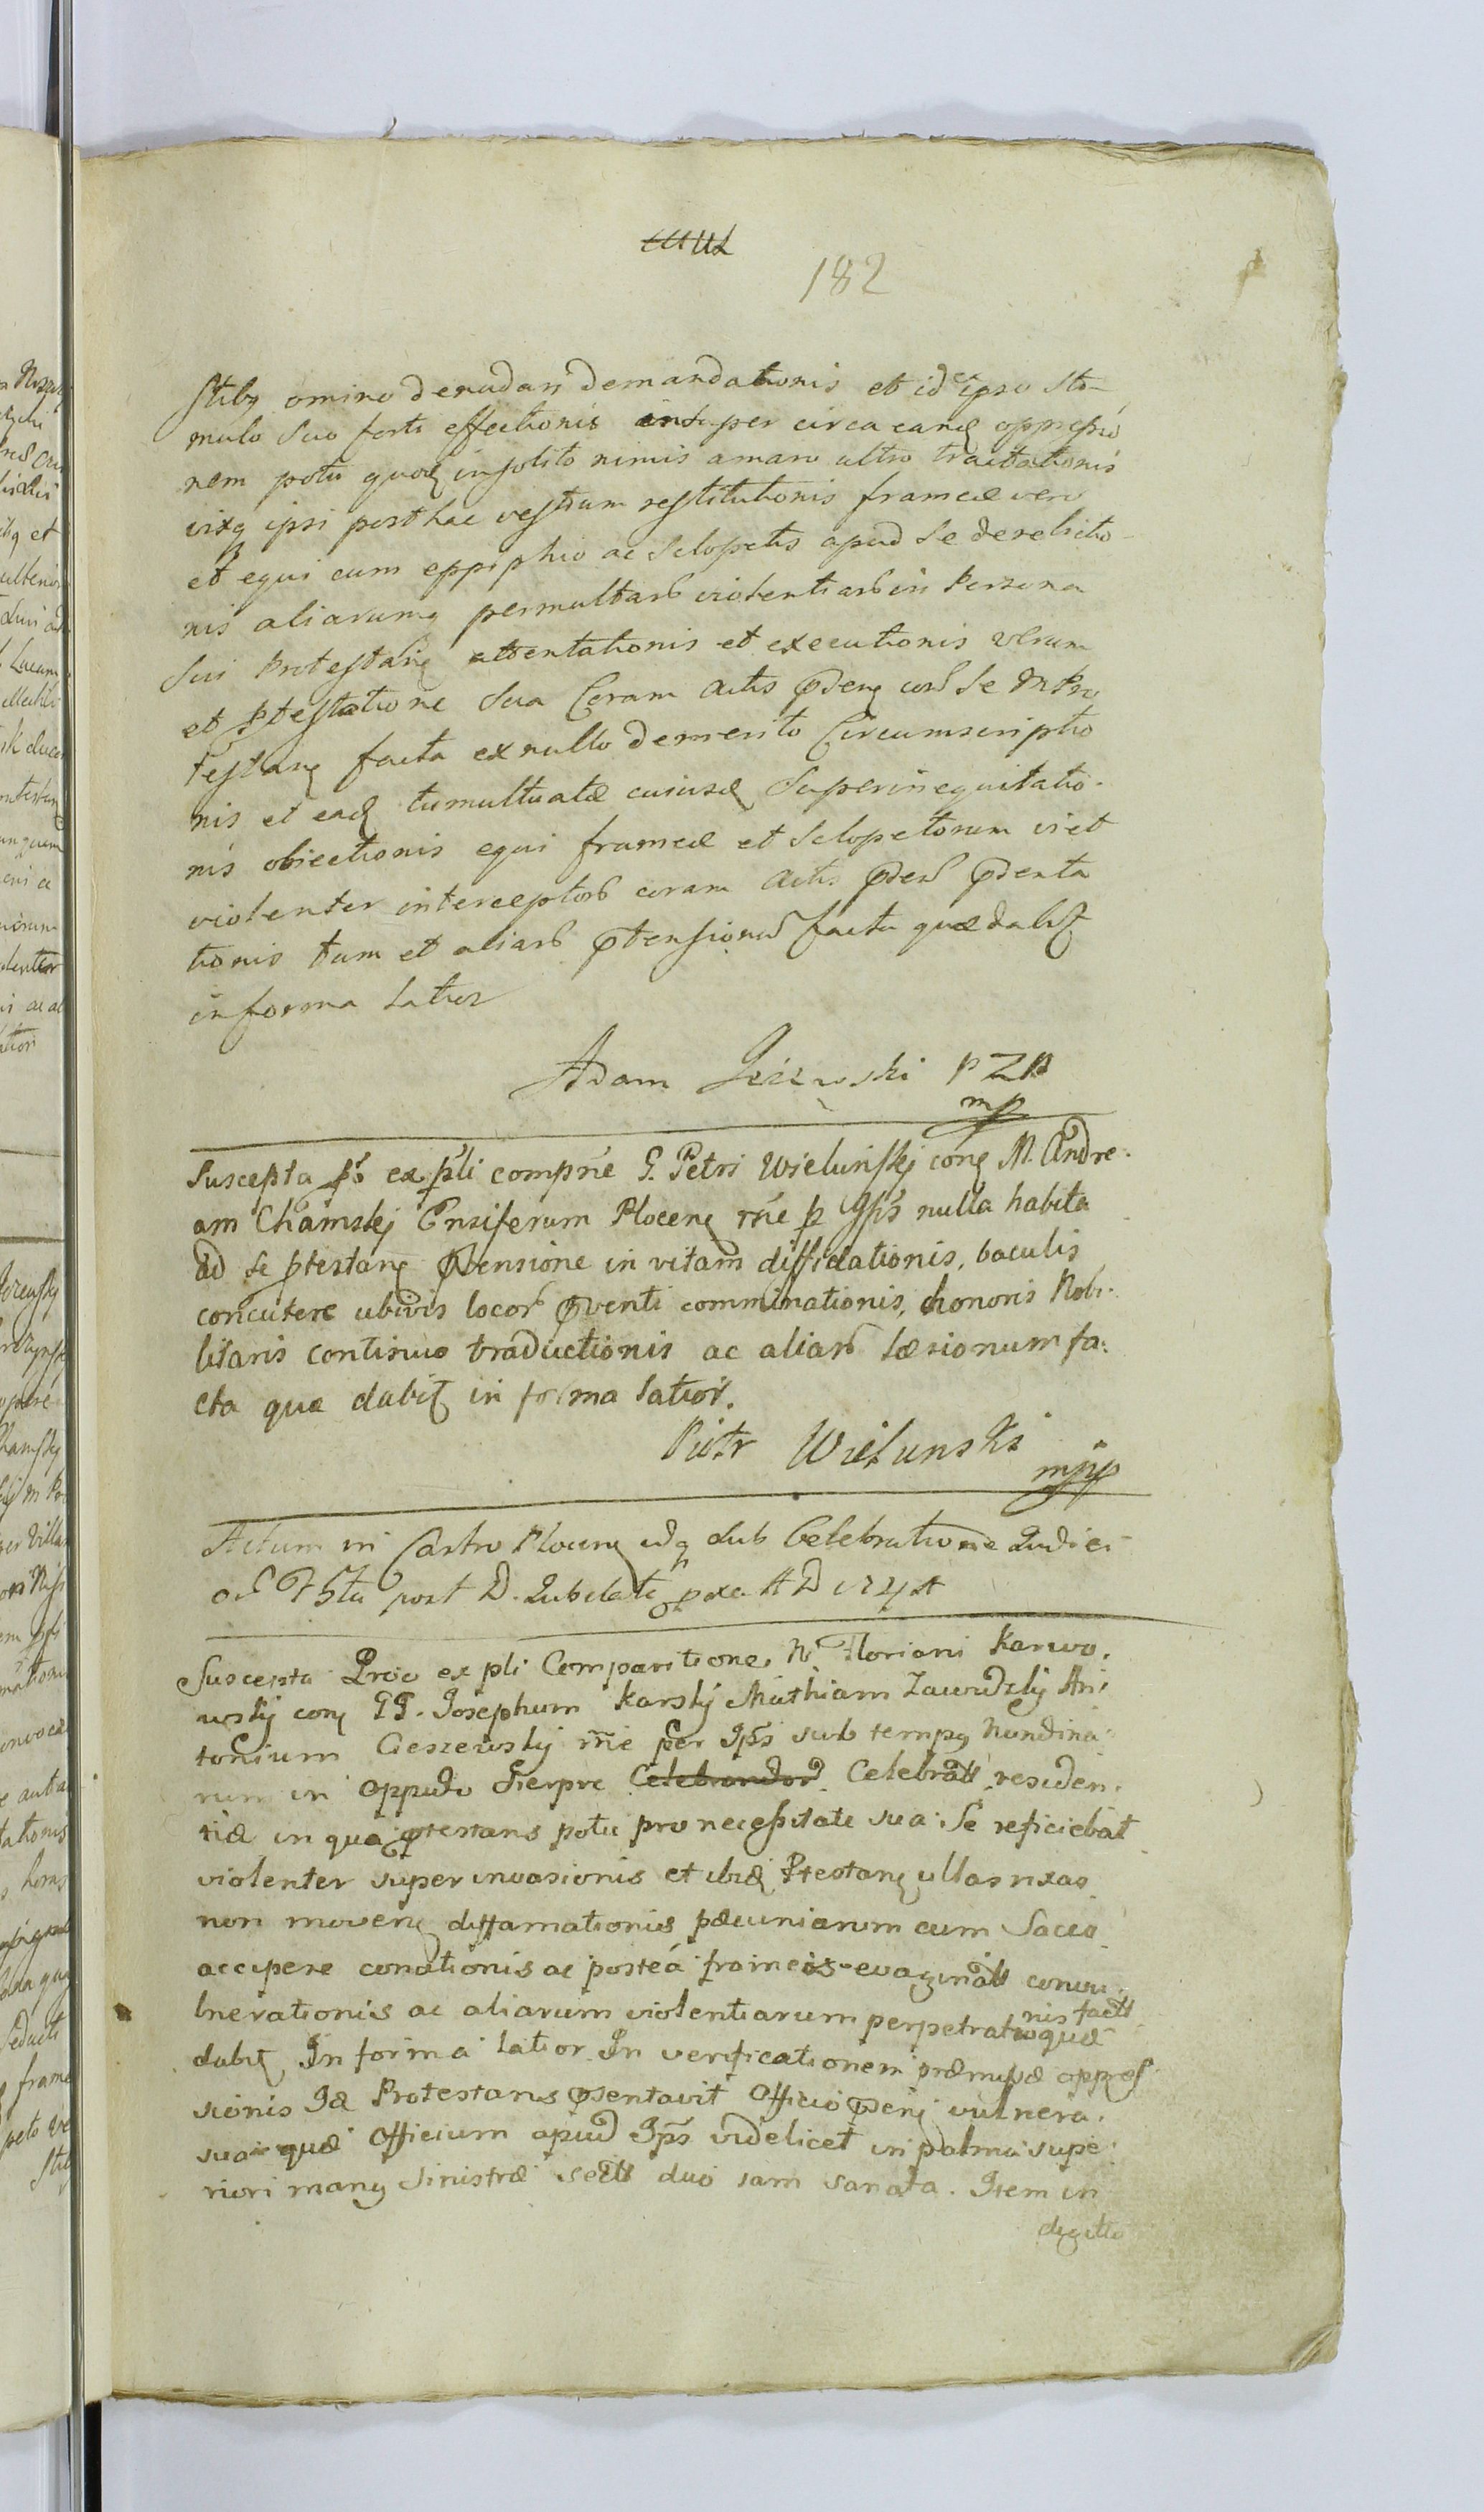 182
stibq omino denudari demandationis et id ex ipso sto-
mulo suo forti effectionis insuper circa eandq oppressio
nem potu quodq insolito nimis amaro ultro tractationis
vixq ipsi posthac vestium restitutionis frameæ vero
et equi cum eppiphio ac sclopetis apud se derelictio-
nis aliarumq permultarb violentiarb in Persona
sui Protestanq attentationis et executionis
et ptestatione sua Coram Actis pdenq se
testanq facta ex nullo demerito Circumscriptio
nis et eadq tumultuatæ cuiusdq Superinequitatio-
nis obiectionis equi frameæ et sclopetorum vi et
violenter interceptorb coram Actis pdenb pdenta
tionis tum et aliarb ptensionub facta quæ dabit
in forma latior
Adam PZP
mp
Suscepta ex pli compne G. Petri Wielunskj conq M. Andre-
am Chamskj Ensiferum Plocenq rne p Ipš nulla habita
ad se ptestanq ptensione in vitam diffidationis, baculis
concutere ubivis locorb pventi comminationis, honoris Nobi-
litaris continuo traductionis ac aliarb læsionum fa-
cta quæ dabit in forma latior.
Piotr Wielunski
mpp
Actum in Castro Plocenq idq sub Celebratione Judici
post D. Jubilate pxa A D
Suscepta Prõio ex pli Comparitione N Floriani Karwo-
wskj conq GG. Josephum Karskj Mathiam Zawidzkj An-
tonium Cieszewskj rne per Ipš sub tempq Nundina-
rum in oppido Sierpc Celebrandorb Celebratb residen-
tiæ in qua ptestans potu pro necessitate sua se reficiebat
violenter superinvasionis et ibidq Ptestanq ullas rixas
non movenq diffamationis pæcuniarum cum Sacco
accipere conationis ac posteá frameis evaginatb convu-
lnerationis ac aliarum violentiarum perpetratio nis factb quæ
dabit In forma latior In verificationem præmissæ oppres-
sionis Idq Protestans psentavit Officio pdenj vulnera
sua quæ Officium apud Ipš videlicet in palma supe-
riori manq sinistræ sectb duo iam sanata. Item in
digitto